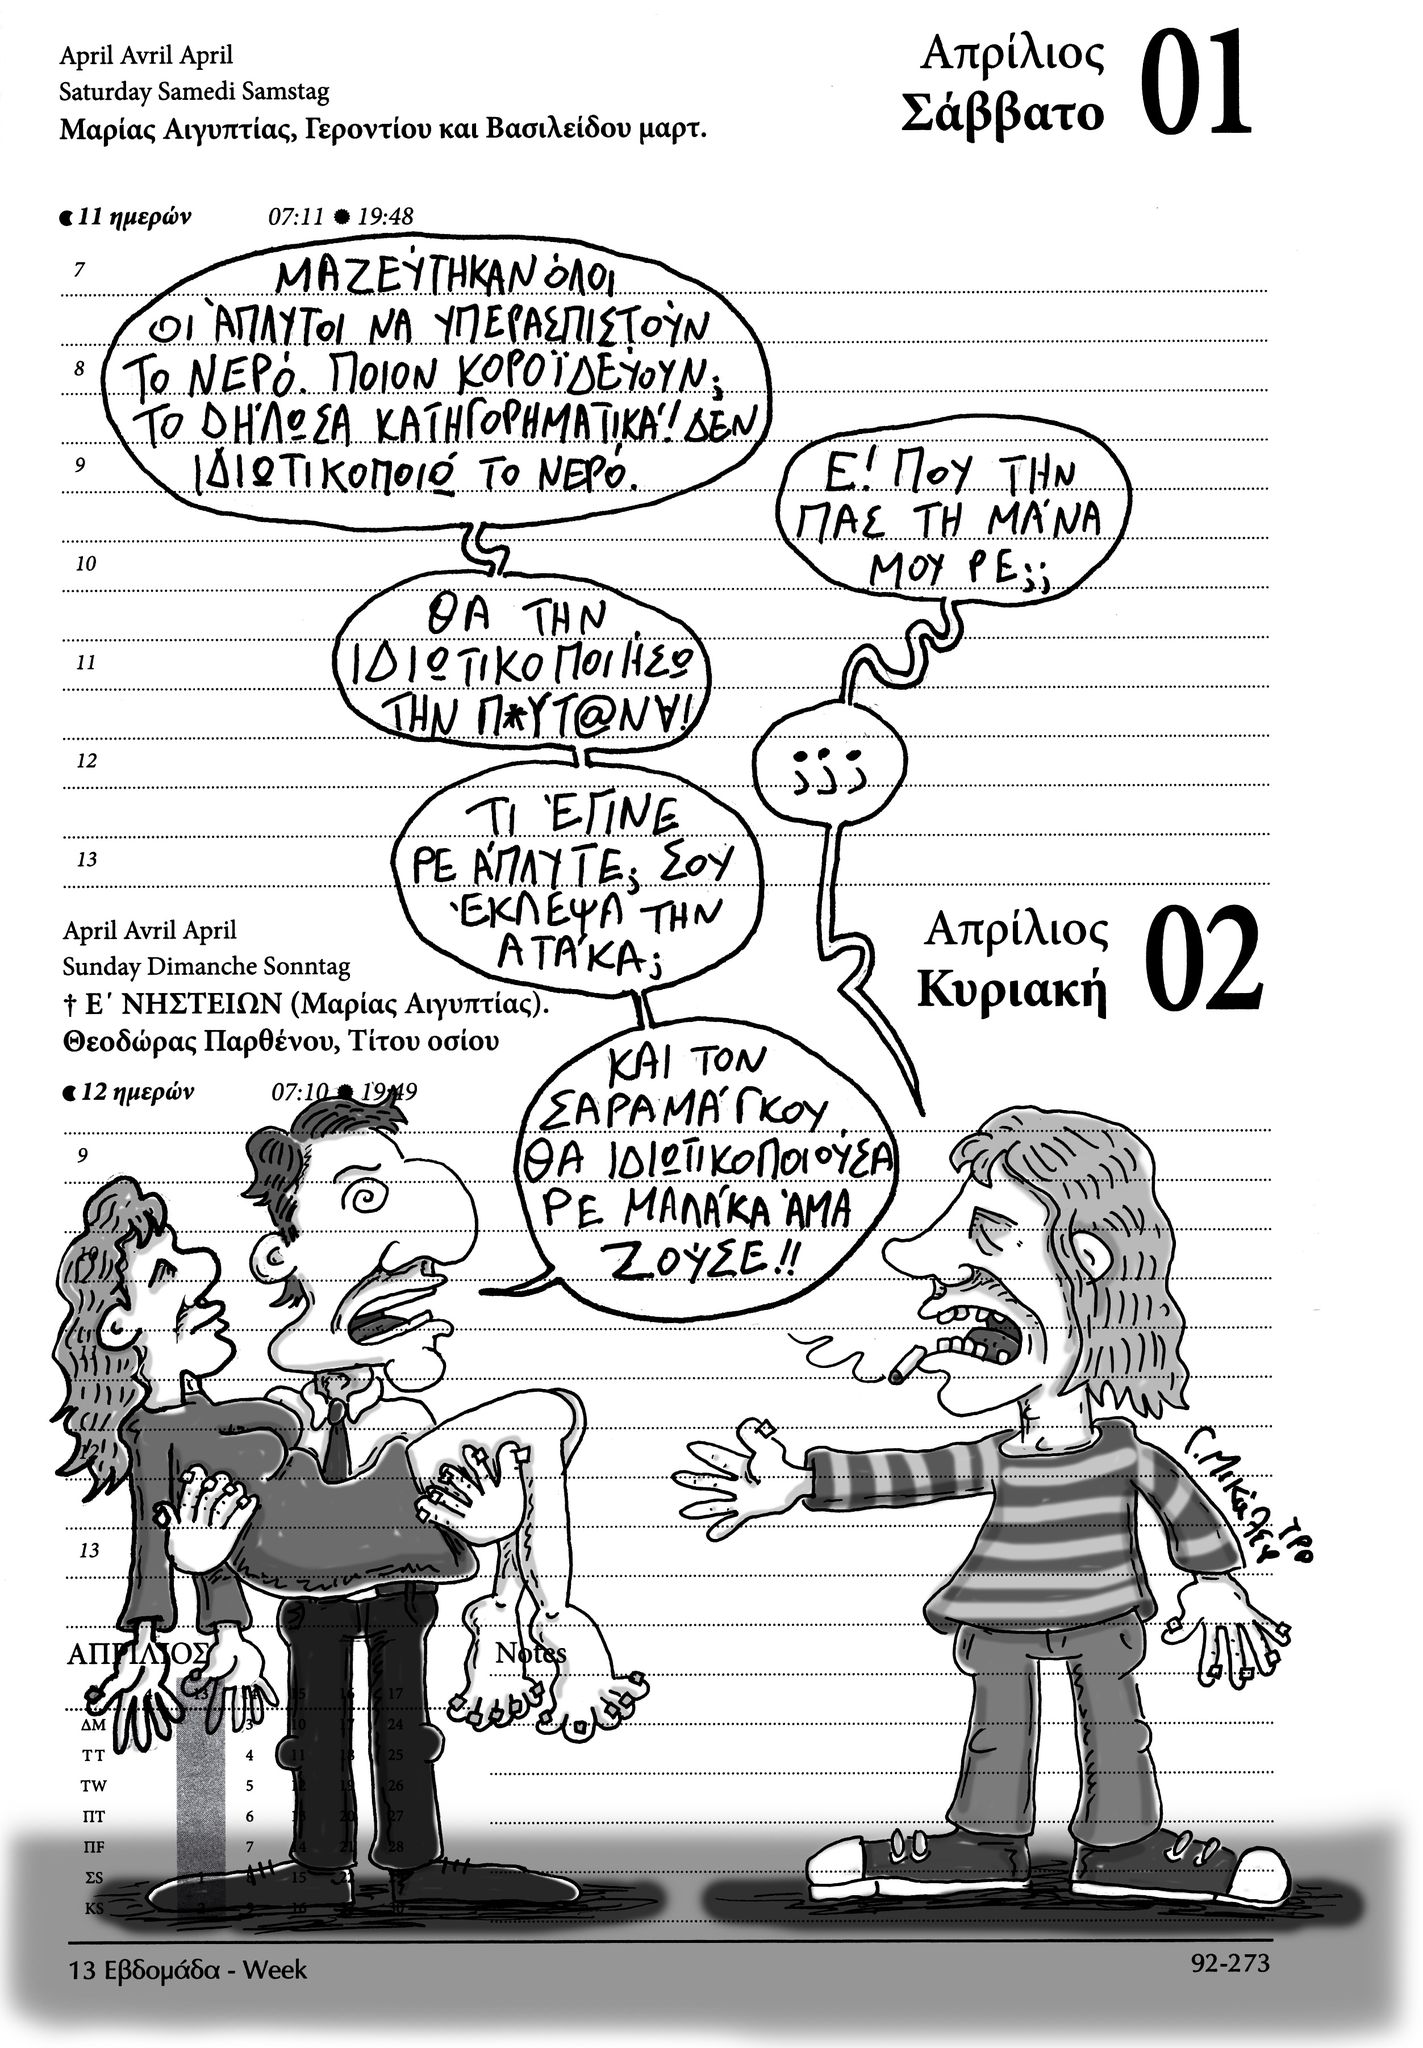 April Avril April
Saturday Samedi Samstag
Μαρίας Αιγυπτίας, Γεροντίου και Βασιλείδου μαρτ.
Απρίλιος
Σάββατο
01
11 ημερών 07:11 19:48
7
8
9
10
11
12
13
ΜΑΖΕΎΤΗΚΑΝ ΌΛΟΙ
ΟΙ ΆΠΛΥΤΟΙ ΝΑ ΥΠΕΡΑΣΠΙΣΤΟΎΝ
ΤΟ ΝΕΡΌ. ΠΟΙΟΝ ΚΟΡΟΪΔΕΎΟΥΝ;
ΤΟ ΔΉΛΩΣΑ ΚΑΤΗΓΟΡΗΜΑΤΙΚΆ! ΔΕΝ
ΙΔΙΩΤΙΚΟΠΟΙΏ ΤΟ ΝΕΡΌ.
Ε! ΠΟΥ ΤΗΝ
ΠΑΣ ΤΗ ΜΆΝΑ
ΜΟΥ ΡΕ;;
ΘΑ ΤΗΝ
ΙΔΙΩΤΙΚΟΠΟΙΉΣΩ
ΤΗΝ Π*ΥΤ@Ν∀!
;;;
ΤΙ ΈΓΙΝΕ
ΡΕ ΆΠΛΥΤΕ; ΣΟΥ
ΈΚΛΕΨΑ ΤΗΝ
ΑΤΆΚΑ;
April Avril April
Sunday Dimanche Sonntag
† Ε΄ ΝΗΣΤΕΙΩΝ (Μαρίας Αιγυπτίας).
Θεοδώρας Παρθένου, Τίτου οσίου
Απρίλιος
Κυριακή
02
12 ημερών 07:10 19:49
ΚΑΙ ΤΟΝ
ΣΑΡΑΜΆΓΚΟΥ
ΘΑ ΙΔΙΩΤΙΚΟΠΟΙΟΎΣΑ
ΡΕ ΜΑΛΆΚΑ ΆΜΑ
ΖΟΎΣΕ!!
9
10
11
12
13
Γ. ΜΙΚΆΛΕΦ
ΤΡΟ
ΑΠΡΙΛΙΟΣ
Notes
4 13 14 15 16 17
ΔM 3 10 17 24
ΤT 4 11 18 25
ΤW 5 12 19 26
ΠT 6 13 20 27
ΠF 7 14 21 28
ΣS 1 8 15 22
ΚS 2 9 16 30
13 Εβδομάδα - Week
92-273